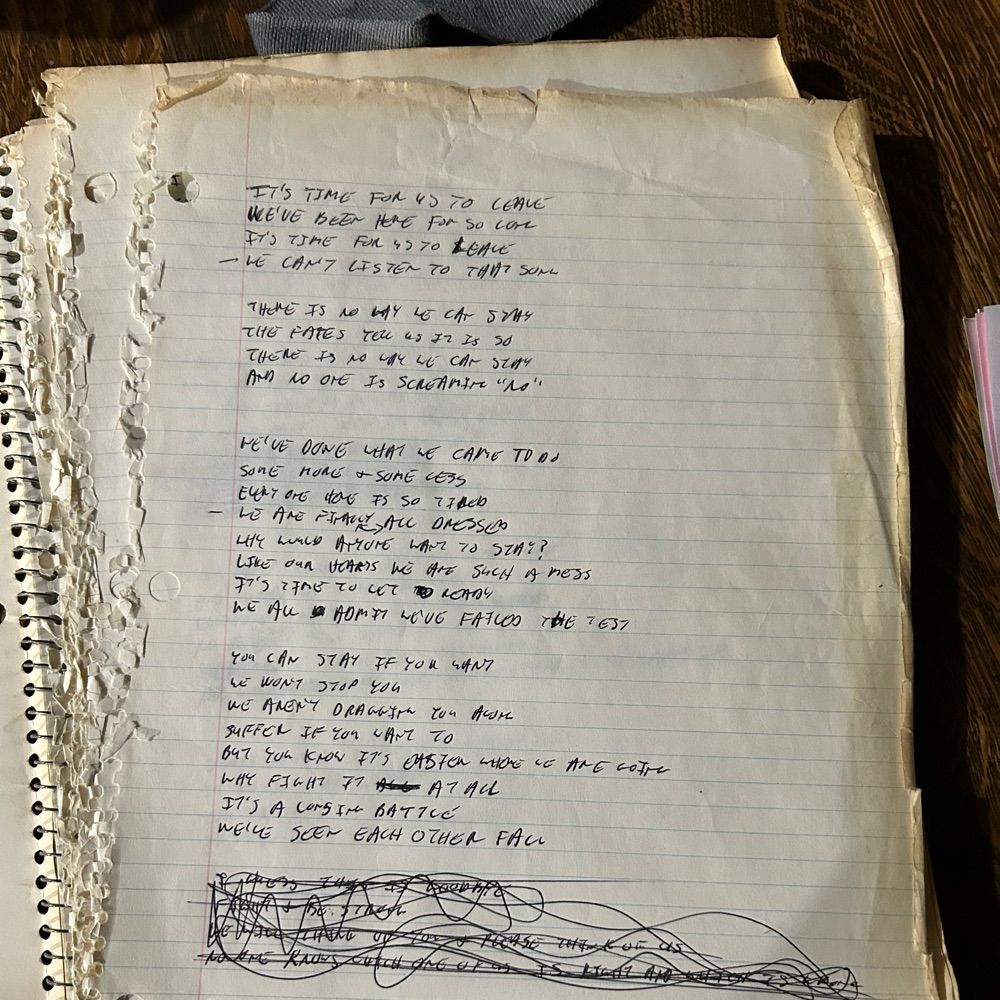 IT'S TIME FOR US TO LEAVE
WE'VE BEEN HERE FOR SO LONG
IT'S TIME FOR US TO LEAVE
— WE CAN'T LISTEN TO THAT SONG
THERE IS NO WAY WE CAN STAY
THE FATES TELL US IT IS SO
THERE IS NO WAY WE CAN STAY
AND NO ONE IS SCREAMING "NO"
WE'VE DONE WHAT WE CAME TO DO
SOME MORE & SOME LESS
EVERYONE HERE IS SO TIRED
— WE ARE FINALLY ALL DRESSED
WHY WOULD ANYONE WANT TO STAY?
LIKE OUR HEARTS WE ARE SUCH A MESS
IT'S TIME TO GET READY
WE ALL ADMIT WE'VE FAILED THE TEST
YOU CAN STAY IF YOU WANT
WE WON'T STOP YOU
WE AREN'T DRAGGING YOU ALONG
SUFFER IF YOU WANT TO
BUT YOU KNOW IT'S EASIER WHERE WE ARE GOING
WHY FIGHT IT AT ALL
IT'S A LOSING BATTLE
WE'VE SEEN EACH OTHER FALL
I GUESS THIS IS GOODBYE
FIGHT & BE STRONG
WE WILL THINK OF YOU & PLEASE THINK OF US
NO ONE KNOWS WHICH ONE OF US IS RIGHT AND WHICH IS WRONG